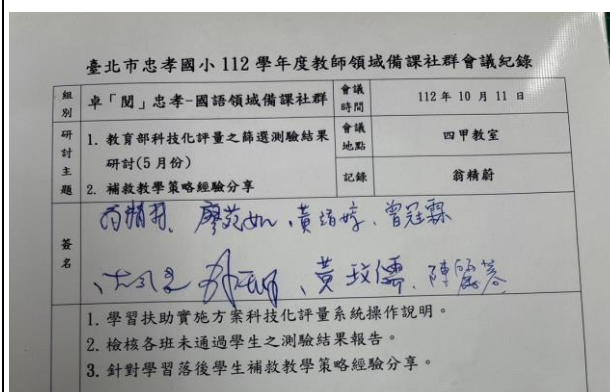 臺北市忠孝國小 112 學年度教師領域備課社群會議紀錄
組別
卓「閱」忠孝-國語領域備課社群
會議時間
112 年 10 月 11 日
研討主題
1. 教育部科技化評量之篩選測驗結果
研討(5 月份)
2. 補救教學策略經驗分享
會議地點
四甲教室
記錄
翁精蔚
簽名
廖苑如、黃靖婷、曾冠霖
黃玟儒、陳麗蓉
1. 學習扶助實施方案科技化評量系統操作說明。
2. 檢核各班未通過學生之測驗結果報告。
3. 針對學習落後學生補救教學策略經驗分享。